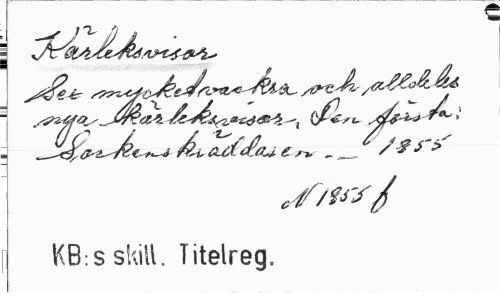 Kärleksvisor
Sex mycket vackra och alldeles
nya kärleksvisor. Den första:
Sockenskräddaren. — 1855
N 1855 f
KB:s skill. Titelreg.